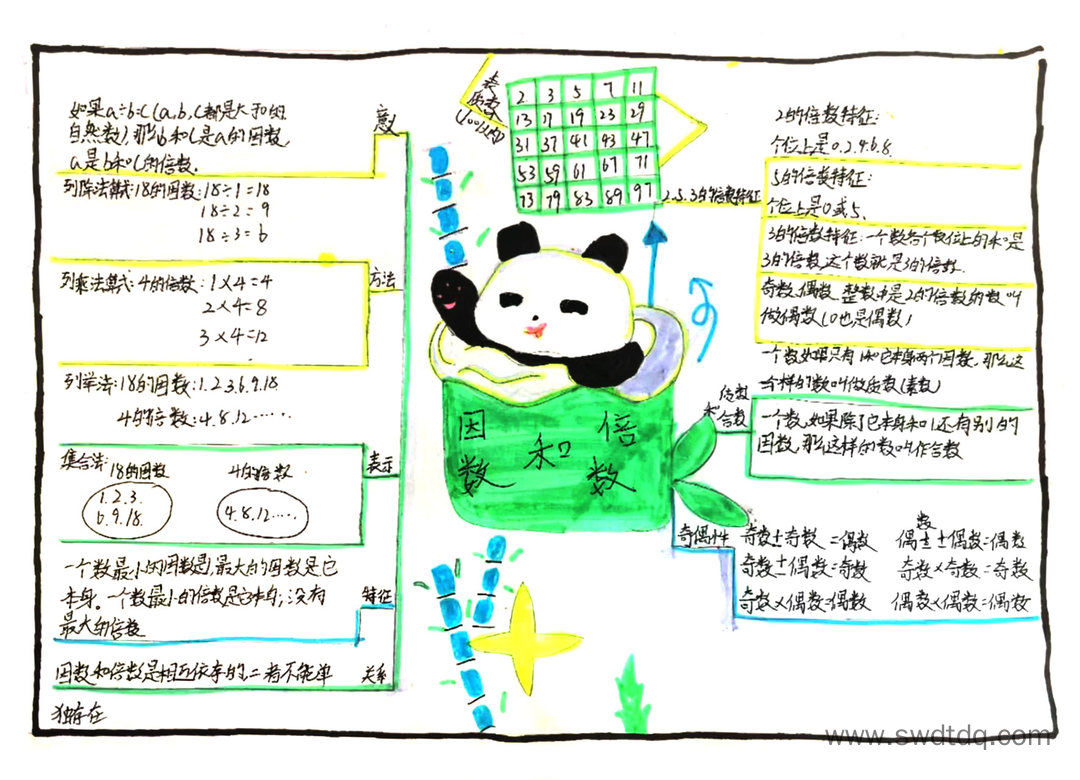 如果a÷b=c(a,b,c都是大于0的
自然数),那么b和c是a的因数
a是b和c的倍数.
意义
列除法算式:18的因数:18÷1=18
18÷2=9
18÷3=6
方法
列乘法算式:4的倍数:1×4=4
2×4=8
3×4=12
列举法:18的因数:1.2.3.6.9.18
4的倍数:4.8.12……
集合法:
18的因数
4的倍数
1.2.3.
6.9.18.
4.8.12……
表示
一个数最小的因数是1,最大的因数是它
本身。一个数最小的倍数是它本身,没有
最大的倍数
特征
因数和倍数是相互依存的,二者不能单
独存在
关系
质数表
(100以内)
2 3 5 7 11
13 17 19 23 29
31 37 41 43 47
53 59 61 67 71
73 79 83 89 97
因数
和
倍数
2.5.3的倍数特征
2的倍数特征:
个位上是0.2.4.6.8.
5的倍数特征:
个位上是0或5.
3的倍数特征:一个数各个数位上的和是
3的倍数,这个数就是3的倍数.
奇数、偶数 整数中是2的倍数的数叫
做偶数(0也是偶数)
一个数,如果只有1和它本身两个因数,那么这
样的数叫做质数(素数)
和合数
一个数,如果除了它本身和1还有别的
因数,那么这样的数叫作合数
奇偶性
奇数±奇数=偶数 偶数±偶数=偶数
奇数±偶数=奇数 奇数×奇数=奇数
奇数×偶数=偶数 偶数×偶数=偶数
www.swdtdq.com